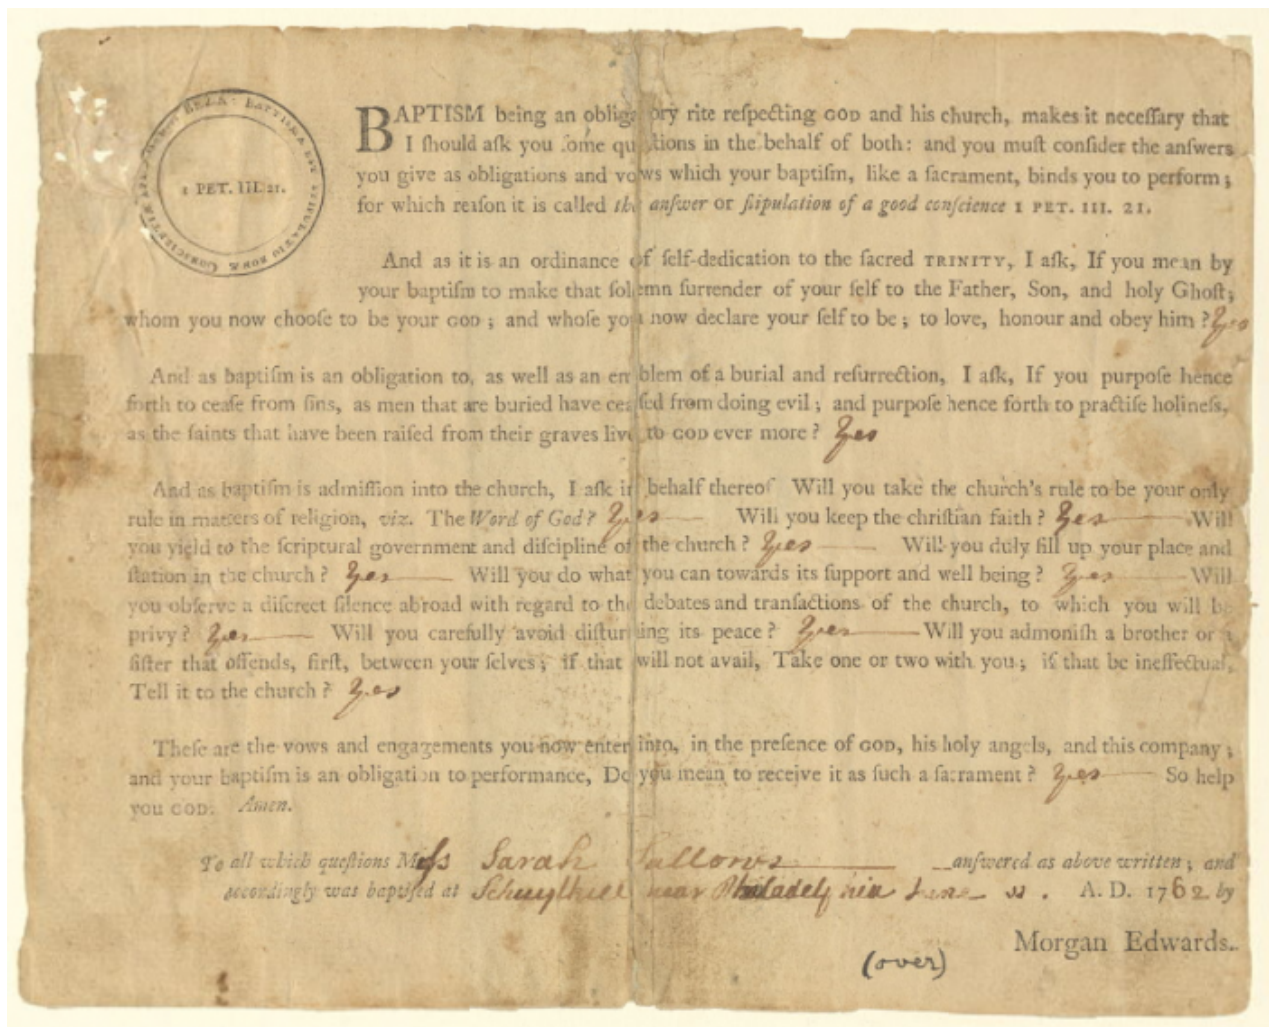 BEZA: BAPTISMA EST STIPULATIO BONÆ CONSCIENTIÆ
1 PET. III. 21.
BAPTISM being an obligatory rite reſpecting GOD and his church, makes it neceſſary that
I ſhould aſk you ſome queſtions in the behalf of both: and you muſt conſider the anſwers
you give as obligations and vows which your baptiſm, like a ſacrament, binds you to perform;
for which reaſon it is called the anſwer or ſtipulation of a good conſcience 1 PET. III. 21.
And as it is an ordinance of ſelf-dedication to the ſacred TRINITY, I aſk, If you mean by
your baptiſm to make that ſolemn ſurrender of your ſelf to the Father, Son, and holy Ghoſt;
whom you now chooſe to be your GOD; and whoſe you now declare your ſelf to be; to love, honour and obey him? Yes
And as baptiſm is an obligation to, as well as an emblem of a burial and reſurrection, I aſk, If you purpoſe hence
forth to ceaſe from ſins, as men that are buried have ceaſed from doing evil; and purpoſe hence forth to practiſe holineſs,
as the ſaints that have been raiſed from their graves live to GOD ever more? Yes
And as baptiſm is admiſſion into the church, I aſk in behalf thereof Will you take the church's rule to be your only
rule in matters of religion, viz. The Word of God? Yes Will you keep the chriſtian faith? Yes Will
you yield to the ſcriptural government and diſcipline of the church? Yes Will you duly fill up your place and
ſtation in the church? Yes Will you do what you can towards its ſupport and well being? Yes Will
you obſerve a diſcreet ſilence abroad with regard to the debates and tranſactions of the church, to which you will be
privy? Yes Will you carefully avoid diſturbing its peace? Yes Will you admoniſh a brother or a
ſiſter that offends, firſt, between your ſelves; if that will not avail, Take one or two with you; if that be ineffectual,
Tell it to the church? Yes
Theſe are the vows and engagements you now enter into, in the preſence of GOD, his holy angels, and this company;
and your baptiſm is an obligation to performance, Do you mean to receive it as ſuch a ſacrament? Yes So help
you GOD. Amen.
To all which queſtions Miſs Sarah anſwered as above written; and
accordingly was baptiſed at Schuylkill near Philadelphia June A. D. 1762 by
Morgan Edwards.
(over)